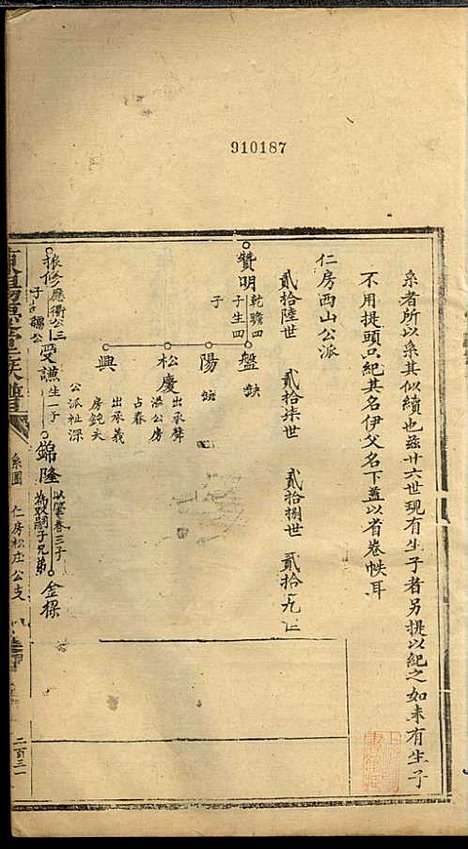 910187
系者所以系其似續也茲廿六世現有生子者另挑以紀之如未有生子
不用提頭只紀其名伊父名下蓋以省卷帙耳
仁房西山公派
貳拾陸世 貳拾柒世 貳拾捌世 貳拾九世
贊明 乾瞻四子生四子
盤 缺
陽 缺
松慶 出承聲洪公房占春
興 出承義房鈍夫公派祉深
振修 應衢公三子
受謙 生一子
錦隆
金樑
系圖 仁房松庄公支
二百三一